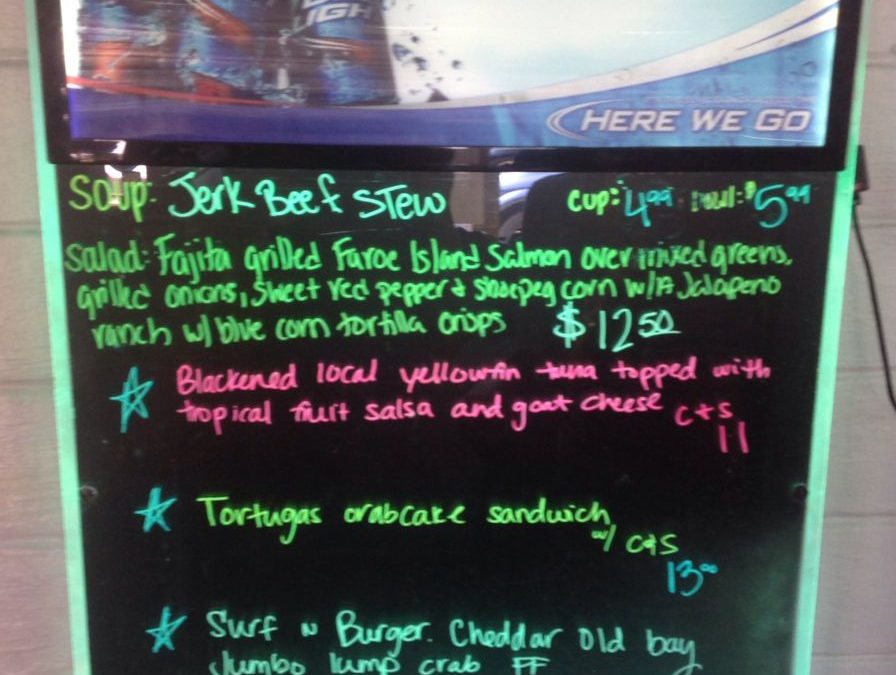 LIGHT
HERE WE GO
Soup: Jerk Beef Stew cup: 4.99 bowl: $5.99
Salad: Fajita grilled Faroe Island Salmon over mixed greens,
grilled onions, sweet red pepper & shoepeg corn w/ A Jalapeno
ranch w/ blue corn tortilla crisps $12.50
Blackened local yellowfin tuna topped with
tropical fruit salsa and goat cheese c+s
11
Tortugas crabcake sandwich
w/ c+s
13.00
Surf N Burger. Cheddar old bay
Jumbo lump crab FF